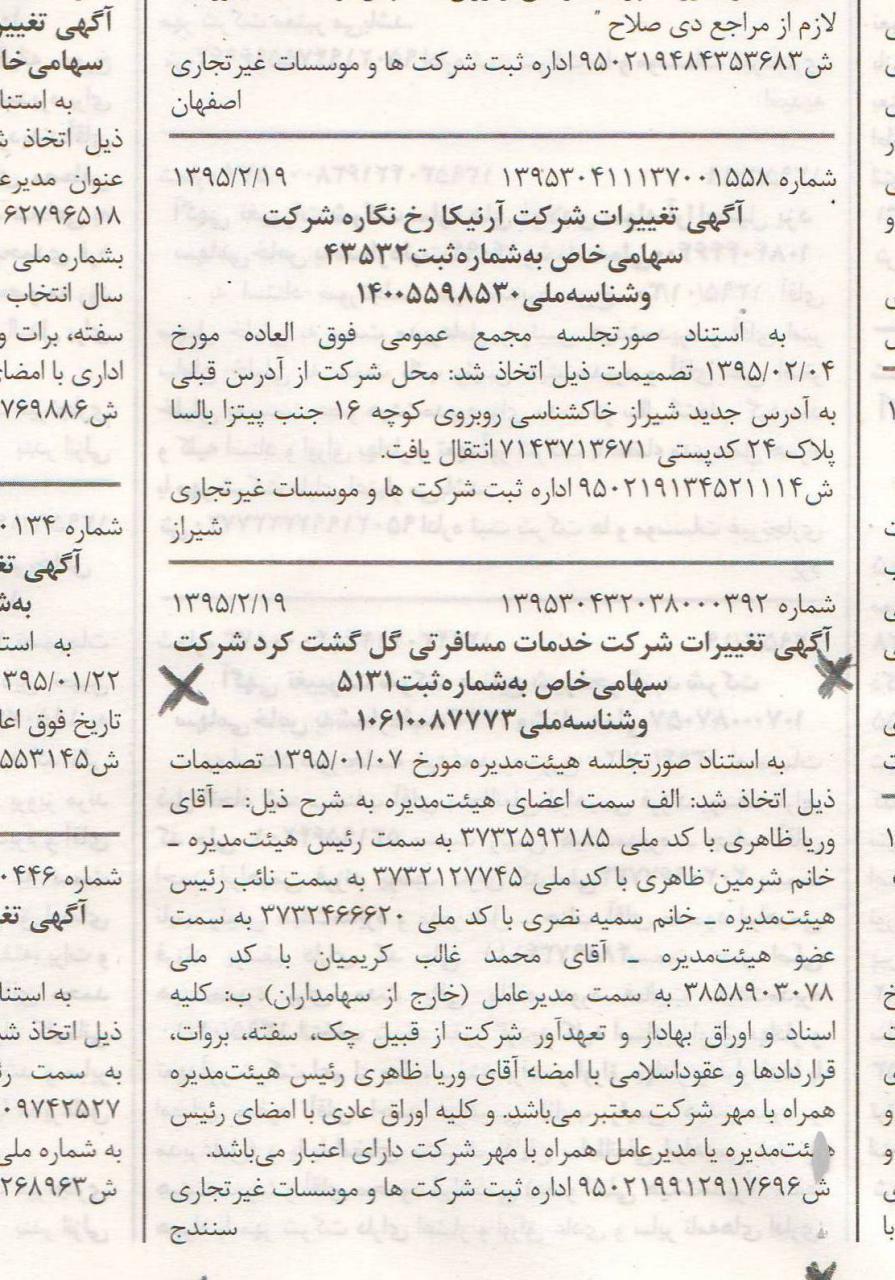 لازم از مراجع ذی صلاح "
ش۹۵۰۲۱۹۴۸۴۳۵۳۶۸۳ اداره ثبت شرکت ها و موسسات غیرتجاری
اصفهان
شماره ۱۳۹۵۳۰۴۱۱۱۳۷۰۰۱۵۵۸ ۱۳۹۵/۲/۱۹
آگهی تغییرات شرکت آرنیکا رخ نگاره شرکت
سهامی‌خاص به‌شماره ثبت ۴۳۵۳۲
وشناسه‌ملی۱۴۰۰۵۵۹۸۵۳۰
به استناد صورتجلسه مجمع عمومی فوق العاده مورخ
۱۳۹۵/۰۲/۰۴ تصمیمات ذیل اتخاذ شد: محل شرکت از آدرس قبلی
به آدرس جدید شیراز خاکشناسی روبروی کوچه ۱۶ جنب پیتزا بالسا
پلاک ۲۴ کدپستی ۷۱۴۳۷۱۳۶۷۱ انتقال یافت.
ش۹۵۰۲۱۹۱۳۴۵۲۱۱۱۴ اداره ثبت شرکت ها و موسسات غیرتجاری
شیراز
شماره ۱۳۹۵۳۰۴۳۲۰۳۸۰۰۰۳۹۲ ۱۳۹۵/۲/۱۹
آگهی تغییرات شرکت خدمات مسافرتی گل گشت کرد شرکت
سهامی‌خاص به‌شماره ثبت۵۱۳۱
وشناسه‌ملی۱۰۶۱۰۰۸۷۷۷۳
به استناد صورتجلسه هیئت‌مدیره مورخ ۱۳۹۵/۰۱/۰۷ تصمیمات
ذیل اتخاذ شد: الف سمت اعضای هیئت‌مدیره به شرح ذیل: ـ آقای
وریا ظاهری با کد ملی ۳۷۳۲۵۹۳۱۸۵ به سمت رئیس هیئت‌مدیره ـ
خانم شرمین ظاهری با کد ملی ۳۷۳۲۱۲۷۷۴۵ به سمت نائب رئیس
هیئت‌مدیره ـ خانم سمیه نصری با کد ملی ۳۷۳۲۴۶۶۶۲۰ به سمت
عضو هیئت‌مدیره ـ آقای محمد غالب کریمیان با کد ملی
۳۸۵۸۹۰۳۰۷۸ به سمت مدیرعامل (خارج از سهامداران) ب: کلیه
اسناد و اوراق بهادار و تعهدآور شرکت از قبیل چک، سفته، بروات،
قراردادها و عقوداسلامی با امضاء آقای وریا ظاهری رئیس هیئت‌مدیره
همراه با مهر شرکت معتبر می‌باشد. و کلیه اوراق عادی با امضای رئیس
هیئت‌مدیره یا مدیرعامل همراه با مهر شرکت دارای اعتبار می‌باشد.
ش۹۵۰۲۱۹۹۱۲۹۱۷۶۹۶ اداره ثبت شرکت ها و موسسات غیرتجاری
سنندج
آگهی تغییر
سهامی‌خا
به استنا
ذیل اتخاذ
عنوان مدیر
۶۲۷۹۶۵۱۸
بشماره ملی
سال انتخاب
سفته، برات و
اداری با امضای
ش۷۶۹۸۸۶
شماره ۰۱۳۴
آگهی تغ
به‌ش
به استنا
۱۳۹۵/۰۱/۲۲
تاریخ فوق اعا
ش۵۵۳۱۴۵
شماره ۰۴۴۶
آگهی تغ
به استنا
ذیل اتخاذ شد
به سمت
۰۹۷۴۲۵۲۷
به شماره ملی
ش۲۶۸۹۶۳